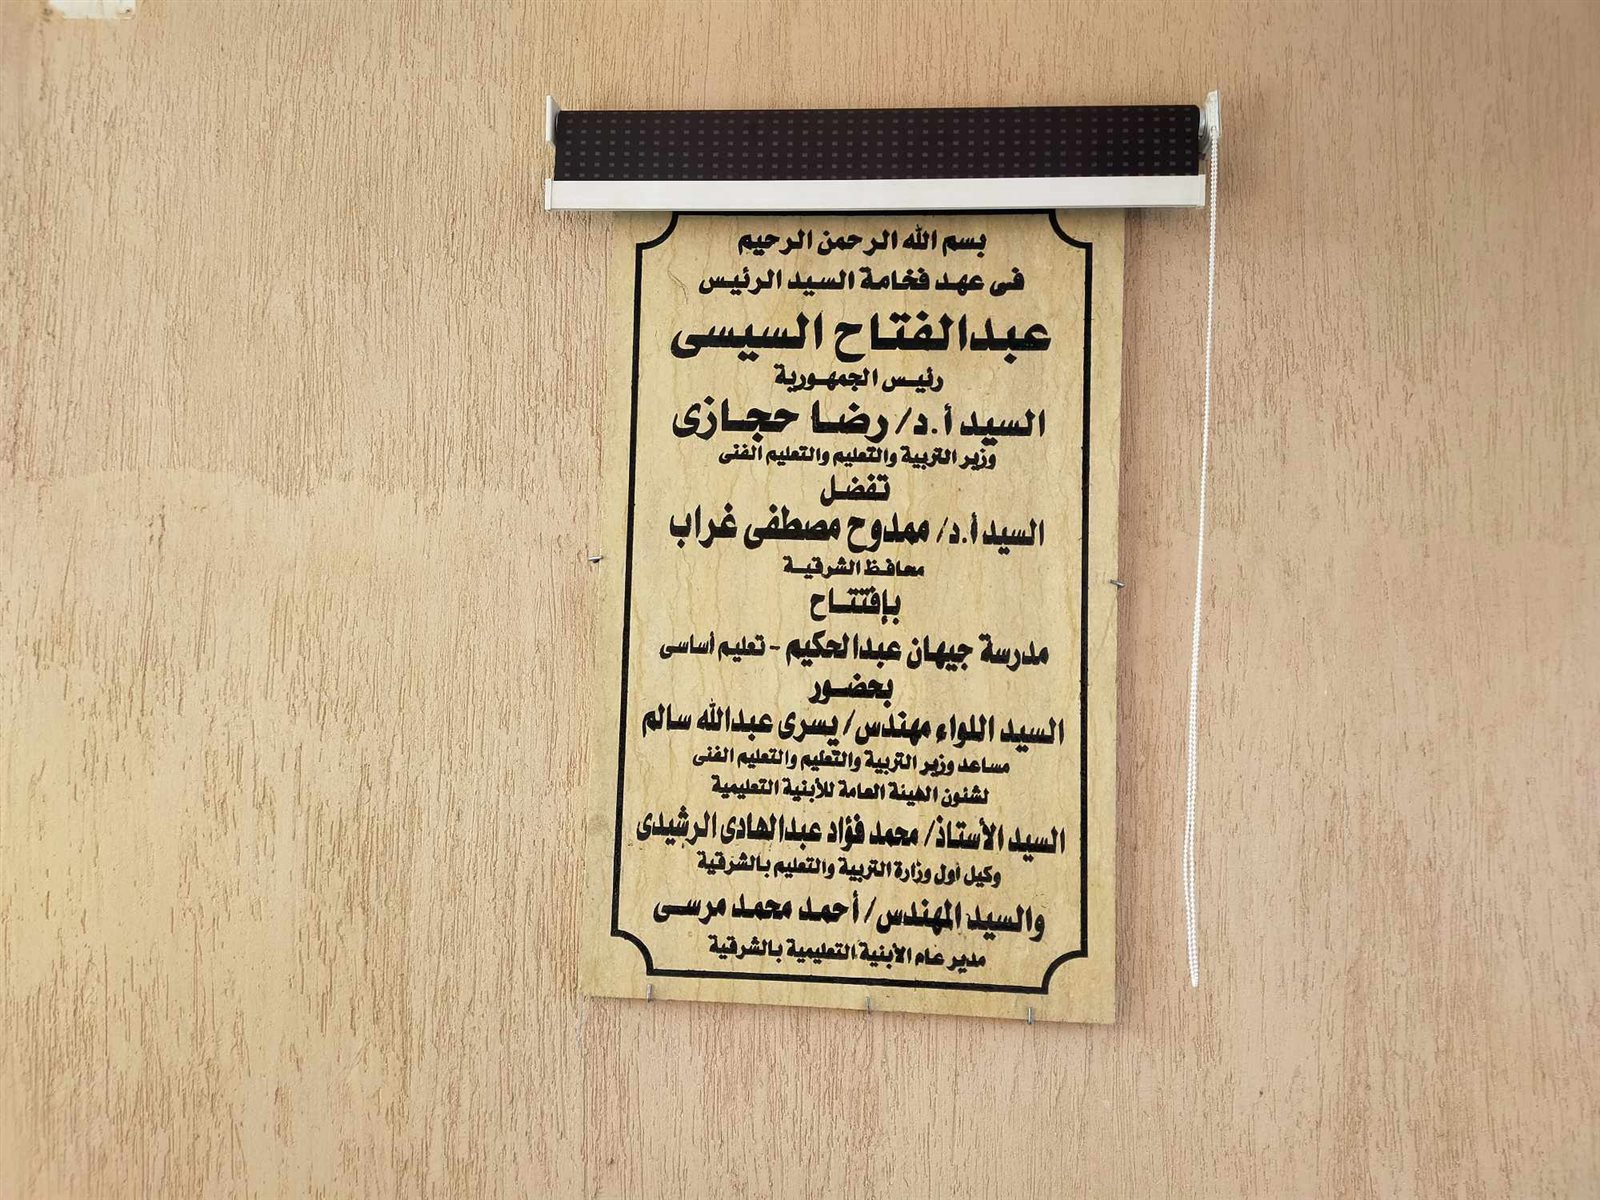 بسم الله الرحمن الرحيم
فى عهد فخامة السيد الرئيس
عبدالفتاح السيسى
رئيس الجمهورية
السيد أ.د/ رضا حجازى
وزير التربية والتعليم والتعليم الفنى
تفضل
السيد أ.د/ ممدوح مصطفى غراب
محافظ الشرقية
بإفتتاح
مدرسة جيهان عبدالحكيم - تعليم أساسى
بحضور
السيد اللواء مهندس/ يسرى عبدالله سالم
مساعد وزير التربية والتعليم والتعليم الفنى
لشئون الهيئة العامة للأبنية التعليمية
السيد الأستاذ/ محمد فؤاد عبدالهادى الرشيدى
وكيل أول وزارة التربية والتعليم بالشرقية
والسيد المهندس/ أحمد محمد مرسى
مدير عام الأبنية التعليمية بالشرقية